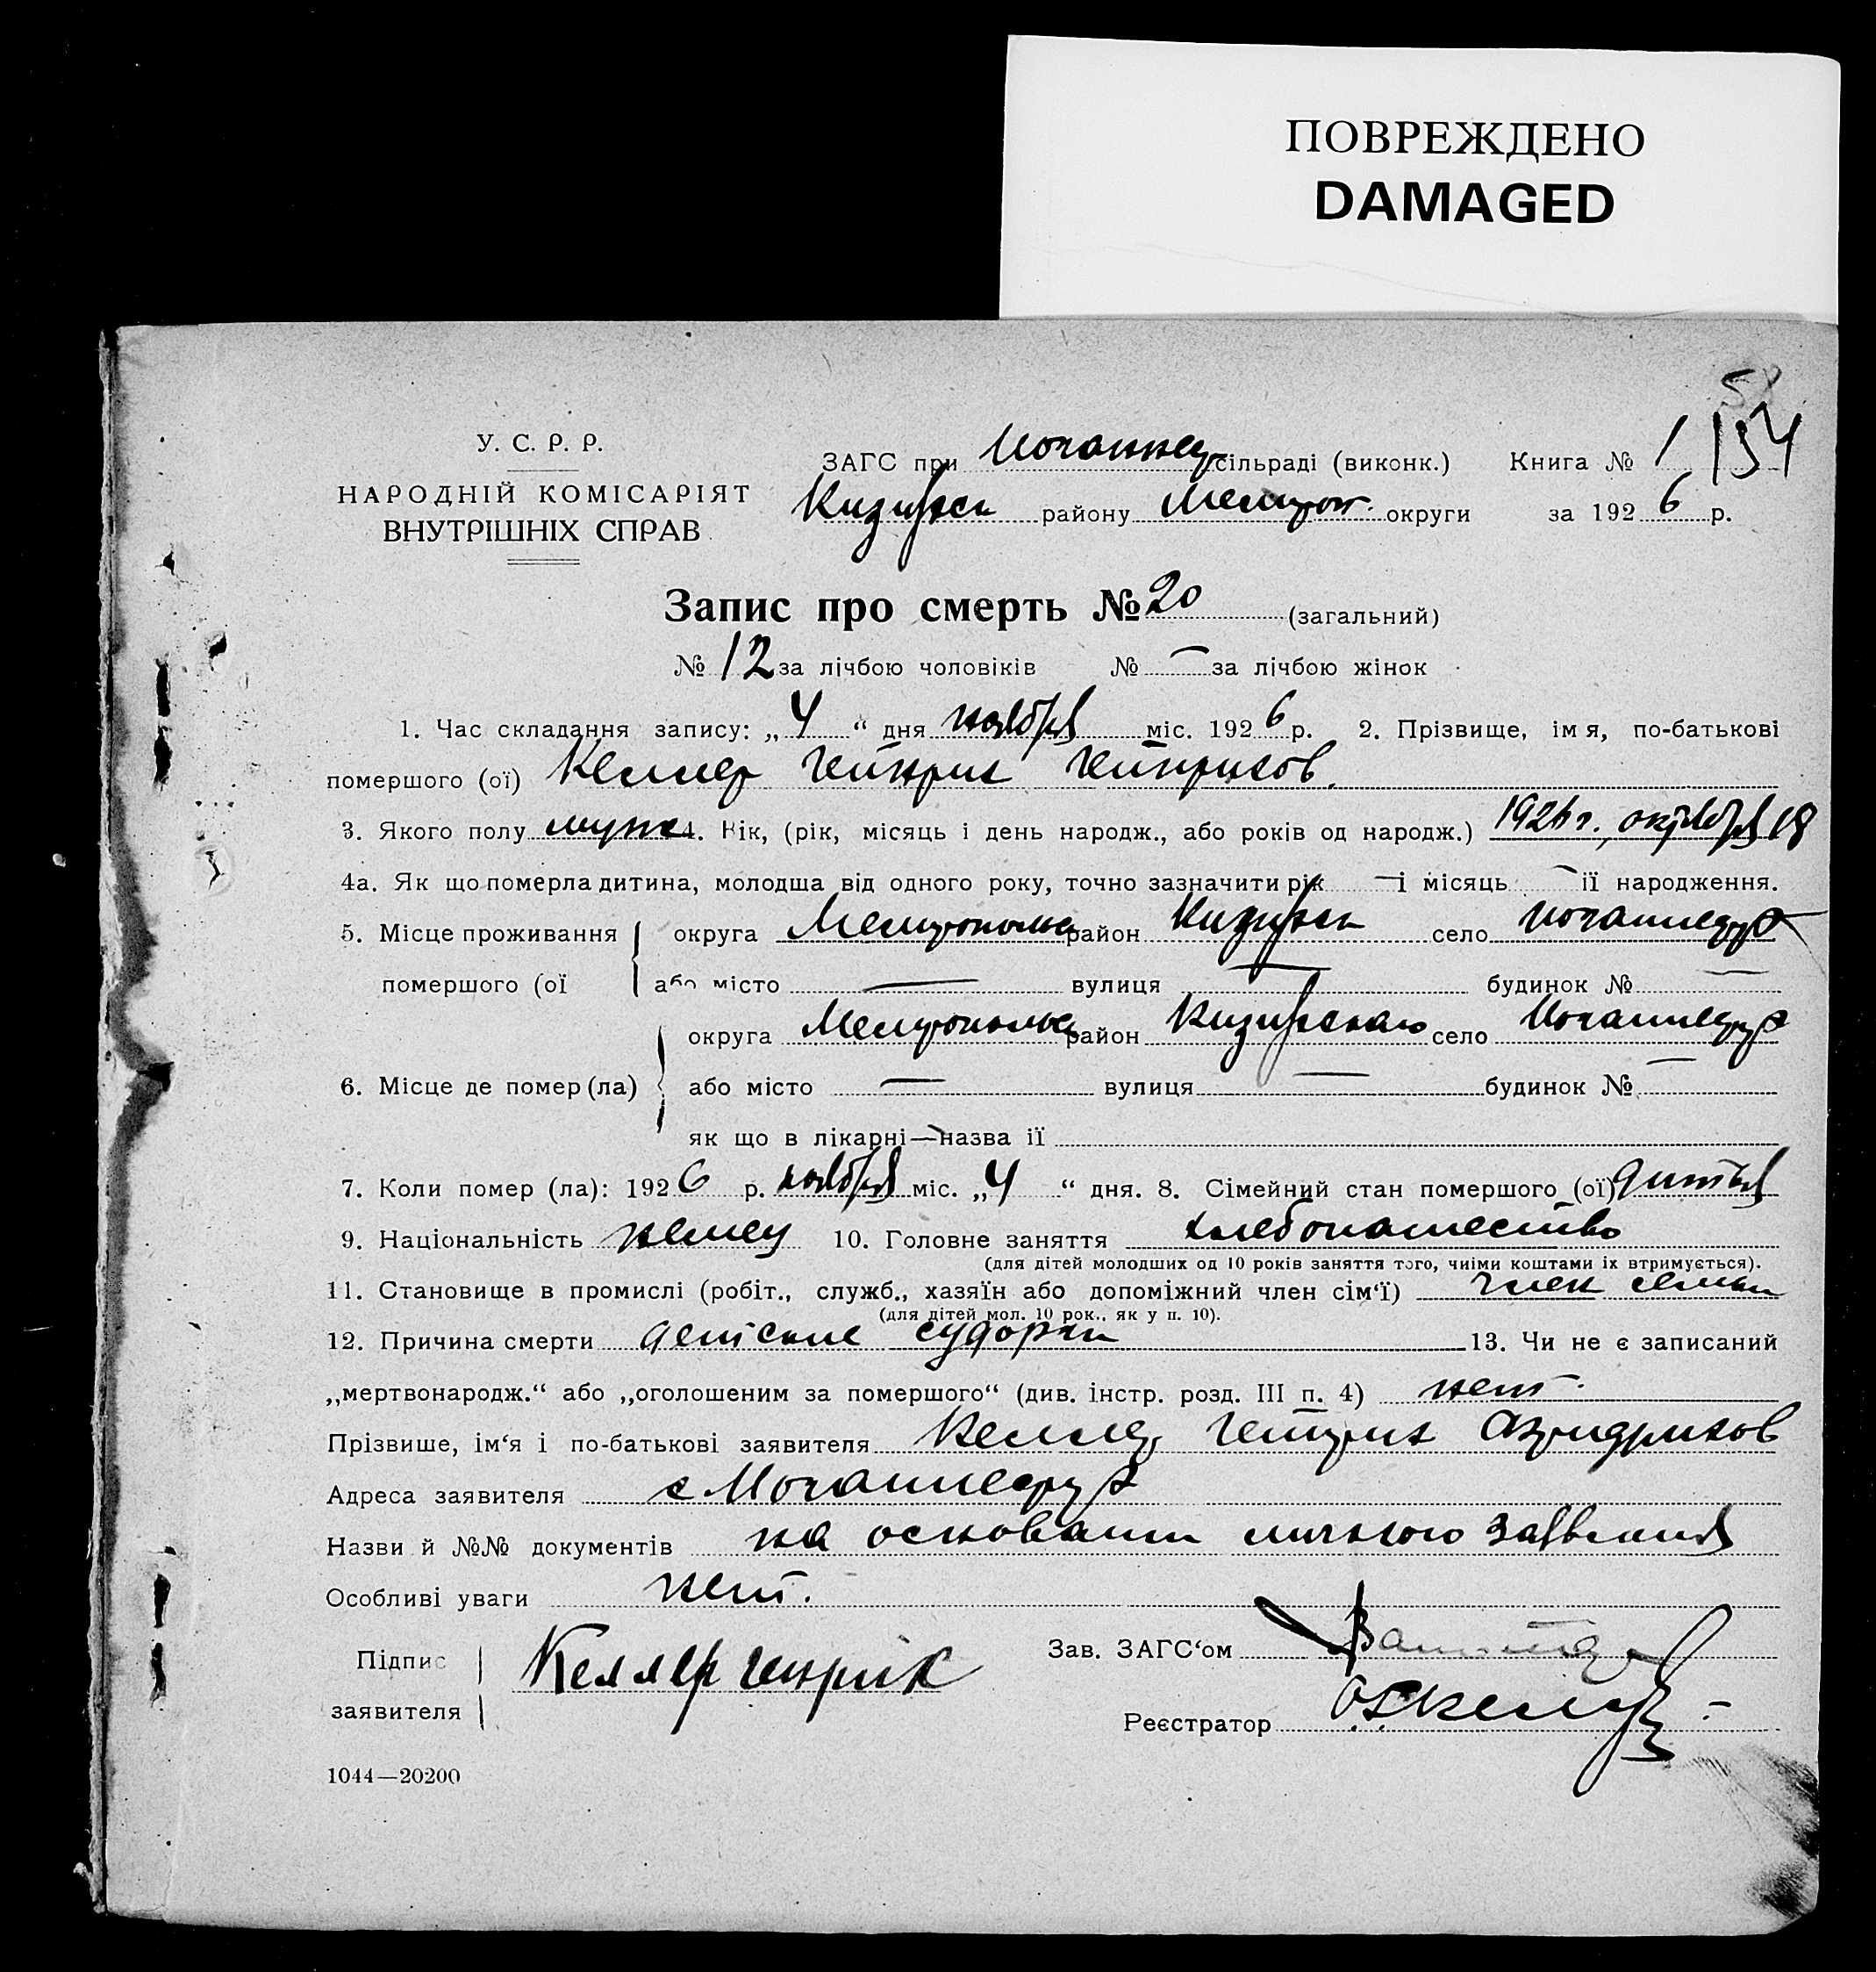 ПОВРЕЖДЕНО
DAMAGED
58
У. С. Р. Р.
НАРОДНІЙ КОМІСАРІЯТ
ВНУТРІШНІХ СПРАВ
ЗАГС при Иоганнес сільраді (виконк.) Книга № 1 154
Кизиярск району Мелитоп. округи за 1926 р.
Запис про смерть № 20 (загальний)
№ 12 за лічбою чоловіків № — за лічбою жінок
1. Час складання запису: „4“ дня ноября міс. 1926 р. 2. Прізвище, імя, по-батькові
помершого (ої) Келлер Гейнрих Гейнрихов.
3. Якого полу муж 4. Вік, (рік, місяць і день народж., або років од народж.) 1926 г., октября 18
4а. Як що померла дитина, молодша від одного року, точно зазначити рік — і місяць — її народження.
5. Місце проживання округа Мелитопольс район Кизиярск село Иоганнесру
помершого (ої або місто — вулиця — будинок № —
округа Мелитопольс район Кизиярского село Иоганнесру
6. Місце де помер (ла) або місто — вулиця — будинок № —
як що в лікарні—назва її
7. Коли помер (ла): 1926 р. ноября міс. „4“ дня. 8. Сімейний стан помершого (ої) дитья
9. Національність немец 10. Головне заняття хлебопашество
(для дітей молодших од 10 років заняття того, чиїми коштами їх втримується).
11. Становище в промислі (робіт., служб., хазяїн або допоміжний член сім‘ї) член семьи
(для дітей мол. 10 рок., як у п. 10).
12. Причина смерти детские судорги 13. Чи не є записаний
„мертвонародж.“ або „оголошеним за помершого“ (див. інстр. розд. III п. 4) нет.
Прізвише, ім‘я і по-батькові заявителя Келлер Гейнрих
Адреса заявителя с Иоганнесру
Назви й №№ документів на основании личного заявления
Особливі уваги нет.
Підпис заявителя Келлер Генрих
Зав. ЗАГС‘ом
Реєстратор
1044—20200